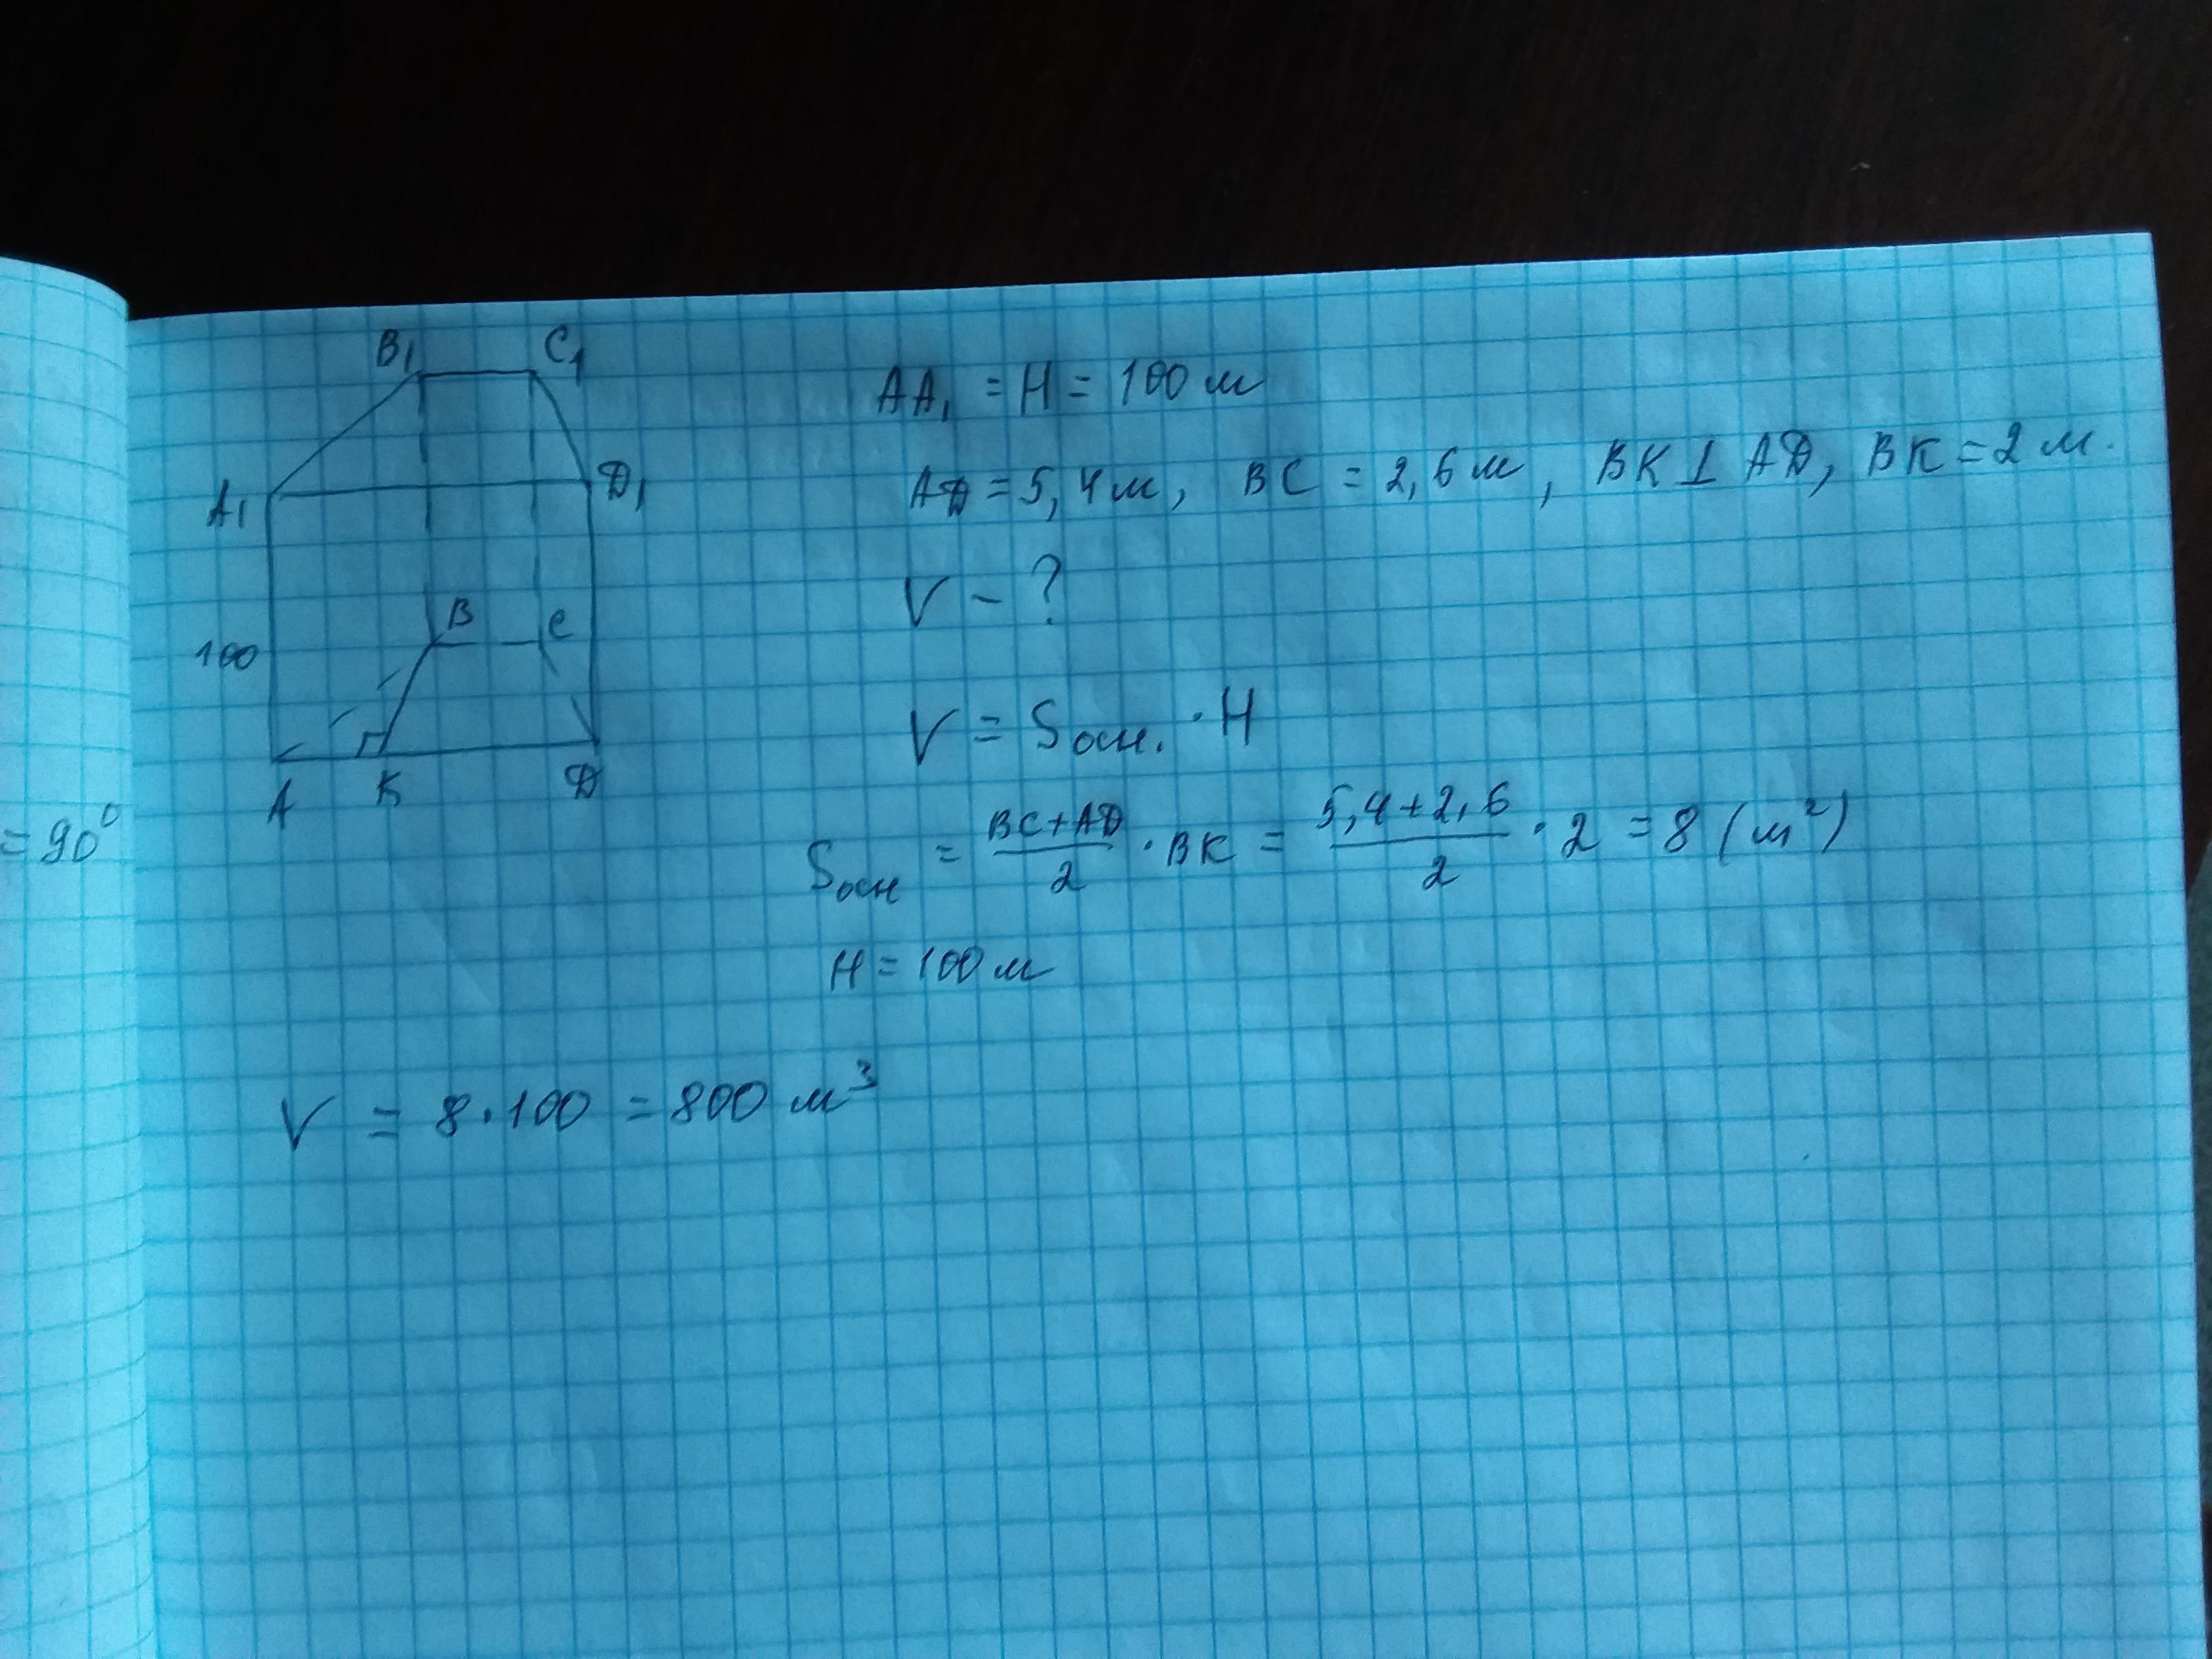 B₁ C₁
A₁ Д₁
B C
100
A K Д
= 90°
AA₁ = H = 100 м
AД = 5,4 м, BC = 2,6 м, BK ⊥ AД, BK = 2 м.
V – ?
V = Sосн. · H
Sосн = (BC + AД)/2 · BK = (5,4 + 2,6)/2 · 2 = 8 (м²)
H = 100 м
V = 8 · 100 = 800 м³